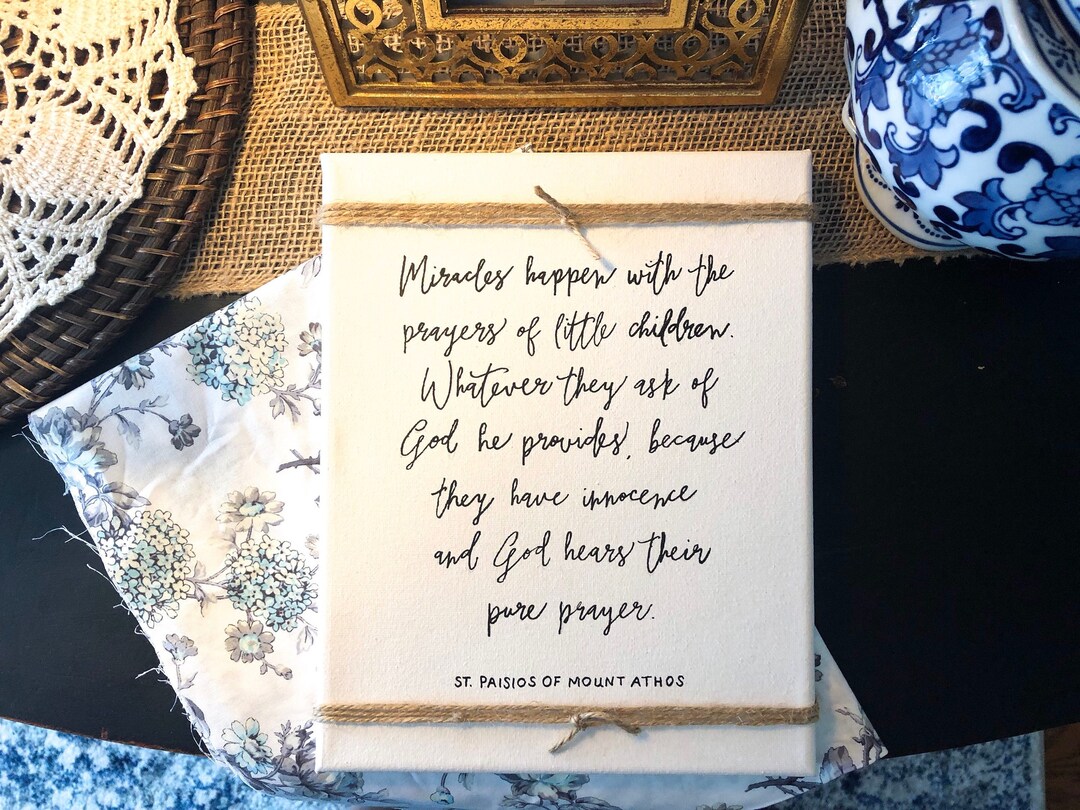 Miracles happen with the
prayers of little children.
Whatever they ask of
God he provides, because
they have innocence
and God hears their
pure prayer.
ST. PAISIOS OF MOUNT ATHOS